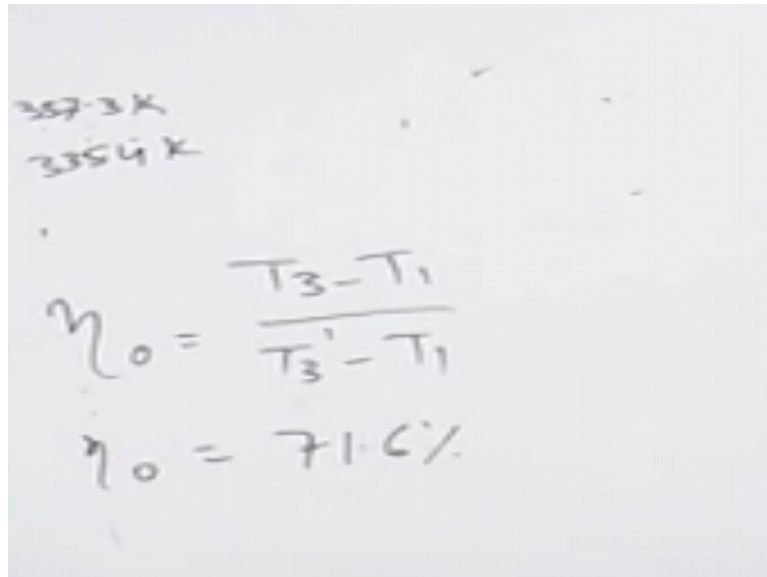 357.3 K
335.4 K
η₀ = (T₃ - T₁) / (T₃' - T₁)
η₀ = 71.6%